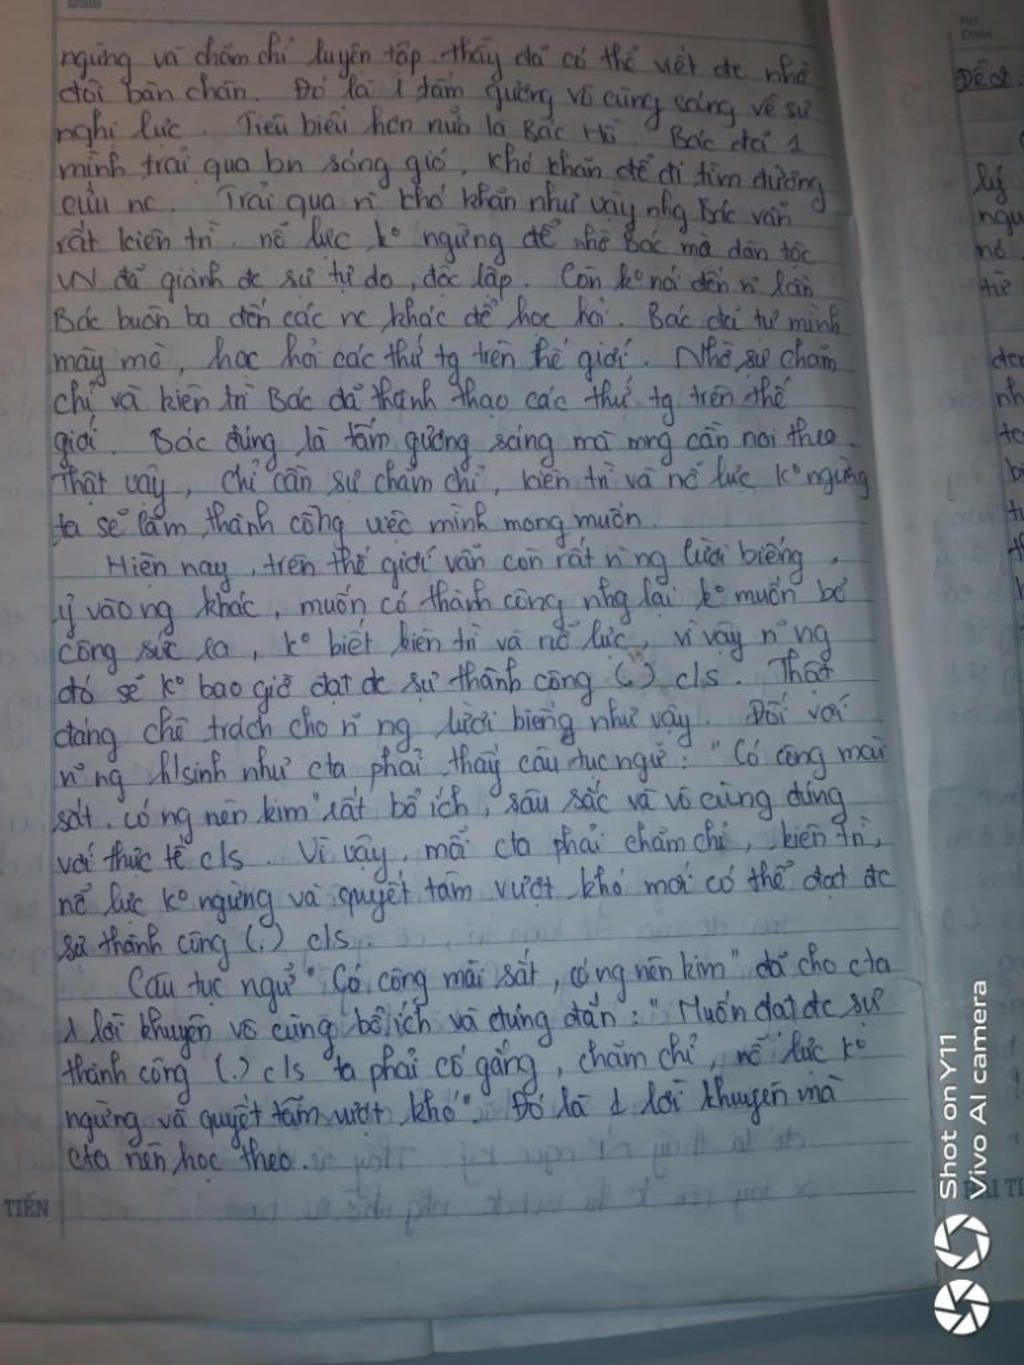 ngừng và chăm chỉ luyện tập thầy đã có thể viết đc nhờ
đôi bàn chân. Đó là 1 tấm gương vô cùng sáng về sự
nghị lực. Tiêu biểu hơn nữa là Bác Hồ. Bác đã 1
mình trải qua bn sóng gió, khó khăn để đi tìm đường
cứu nc. Trải qua n` khó khăn như vậy nhg Bác vẫn
rất kiên trì, nỗ lực ko ngừng để nhờ Bác mà dân tộc
VN đã giành đc sự tự do, độc lập. Còn ko nói đến n` lần
Bác buôn ba đến các nc khác để học hỏi. Bác đã tự mình
mày mò, học hỏi các thứ tg trên thế giới. Nhờ sự chăm
chỉ và kiên trì Bác đã thành thạo các thứ tg trên thế
giới. Bác đúng là tấm gương sáng mà mng cần noi theo.
Thật vậy, chỉ cần sự chăm chỉ, kiên trì và nỗ lực ko ngừng
ta sẽ làm thành công việc mình mong muốn.
Hiện nay, trên thế giới vẫn còn rất n` ng lười biếng,
ỷ vào ng khác, muốn có thành công nhg lại ko muốn bỏ
công sức ra, ko biết kiên trì và nỗ lực, vì vậy n~ ng
đó sẽ ko bao giờ đạt đc sự thành công (.) c/s. Thật
đáng chê trách cho n~ ng lười biếng như vậy. Đối với
n~ ng h/sinh như cta phải thấy câu tục ngữ: "Có công mài
sắt, có ng nên kim" rất bổ ích, sâu sắc và vô cùng đúng
với thực tế c/s. Vì vậy, mỗi cta phải chăm chỉ, kiên trì,
nỗ lực ko ngừng và quyết tâm vượt khó mới có thể đạt đc
sự thành công (.) c/s.
Câu tục ngữ "Có công mài sắt, có ng nên kim" đã cho cta
1 lời khuyên vô cùng bổ ích và đúng đắn: "Muốn đạt đc sự
thành công (.) c/s ta phải cố gắng, chăm chỉ, nỗ lực ko
ngừng và quyết tâm vượt khó". Đó là 1 lời khuyên mà
cta nên học theo.
TIẾN
Shot on Y11
Vivo AI camera